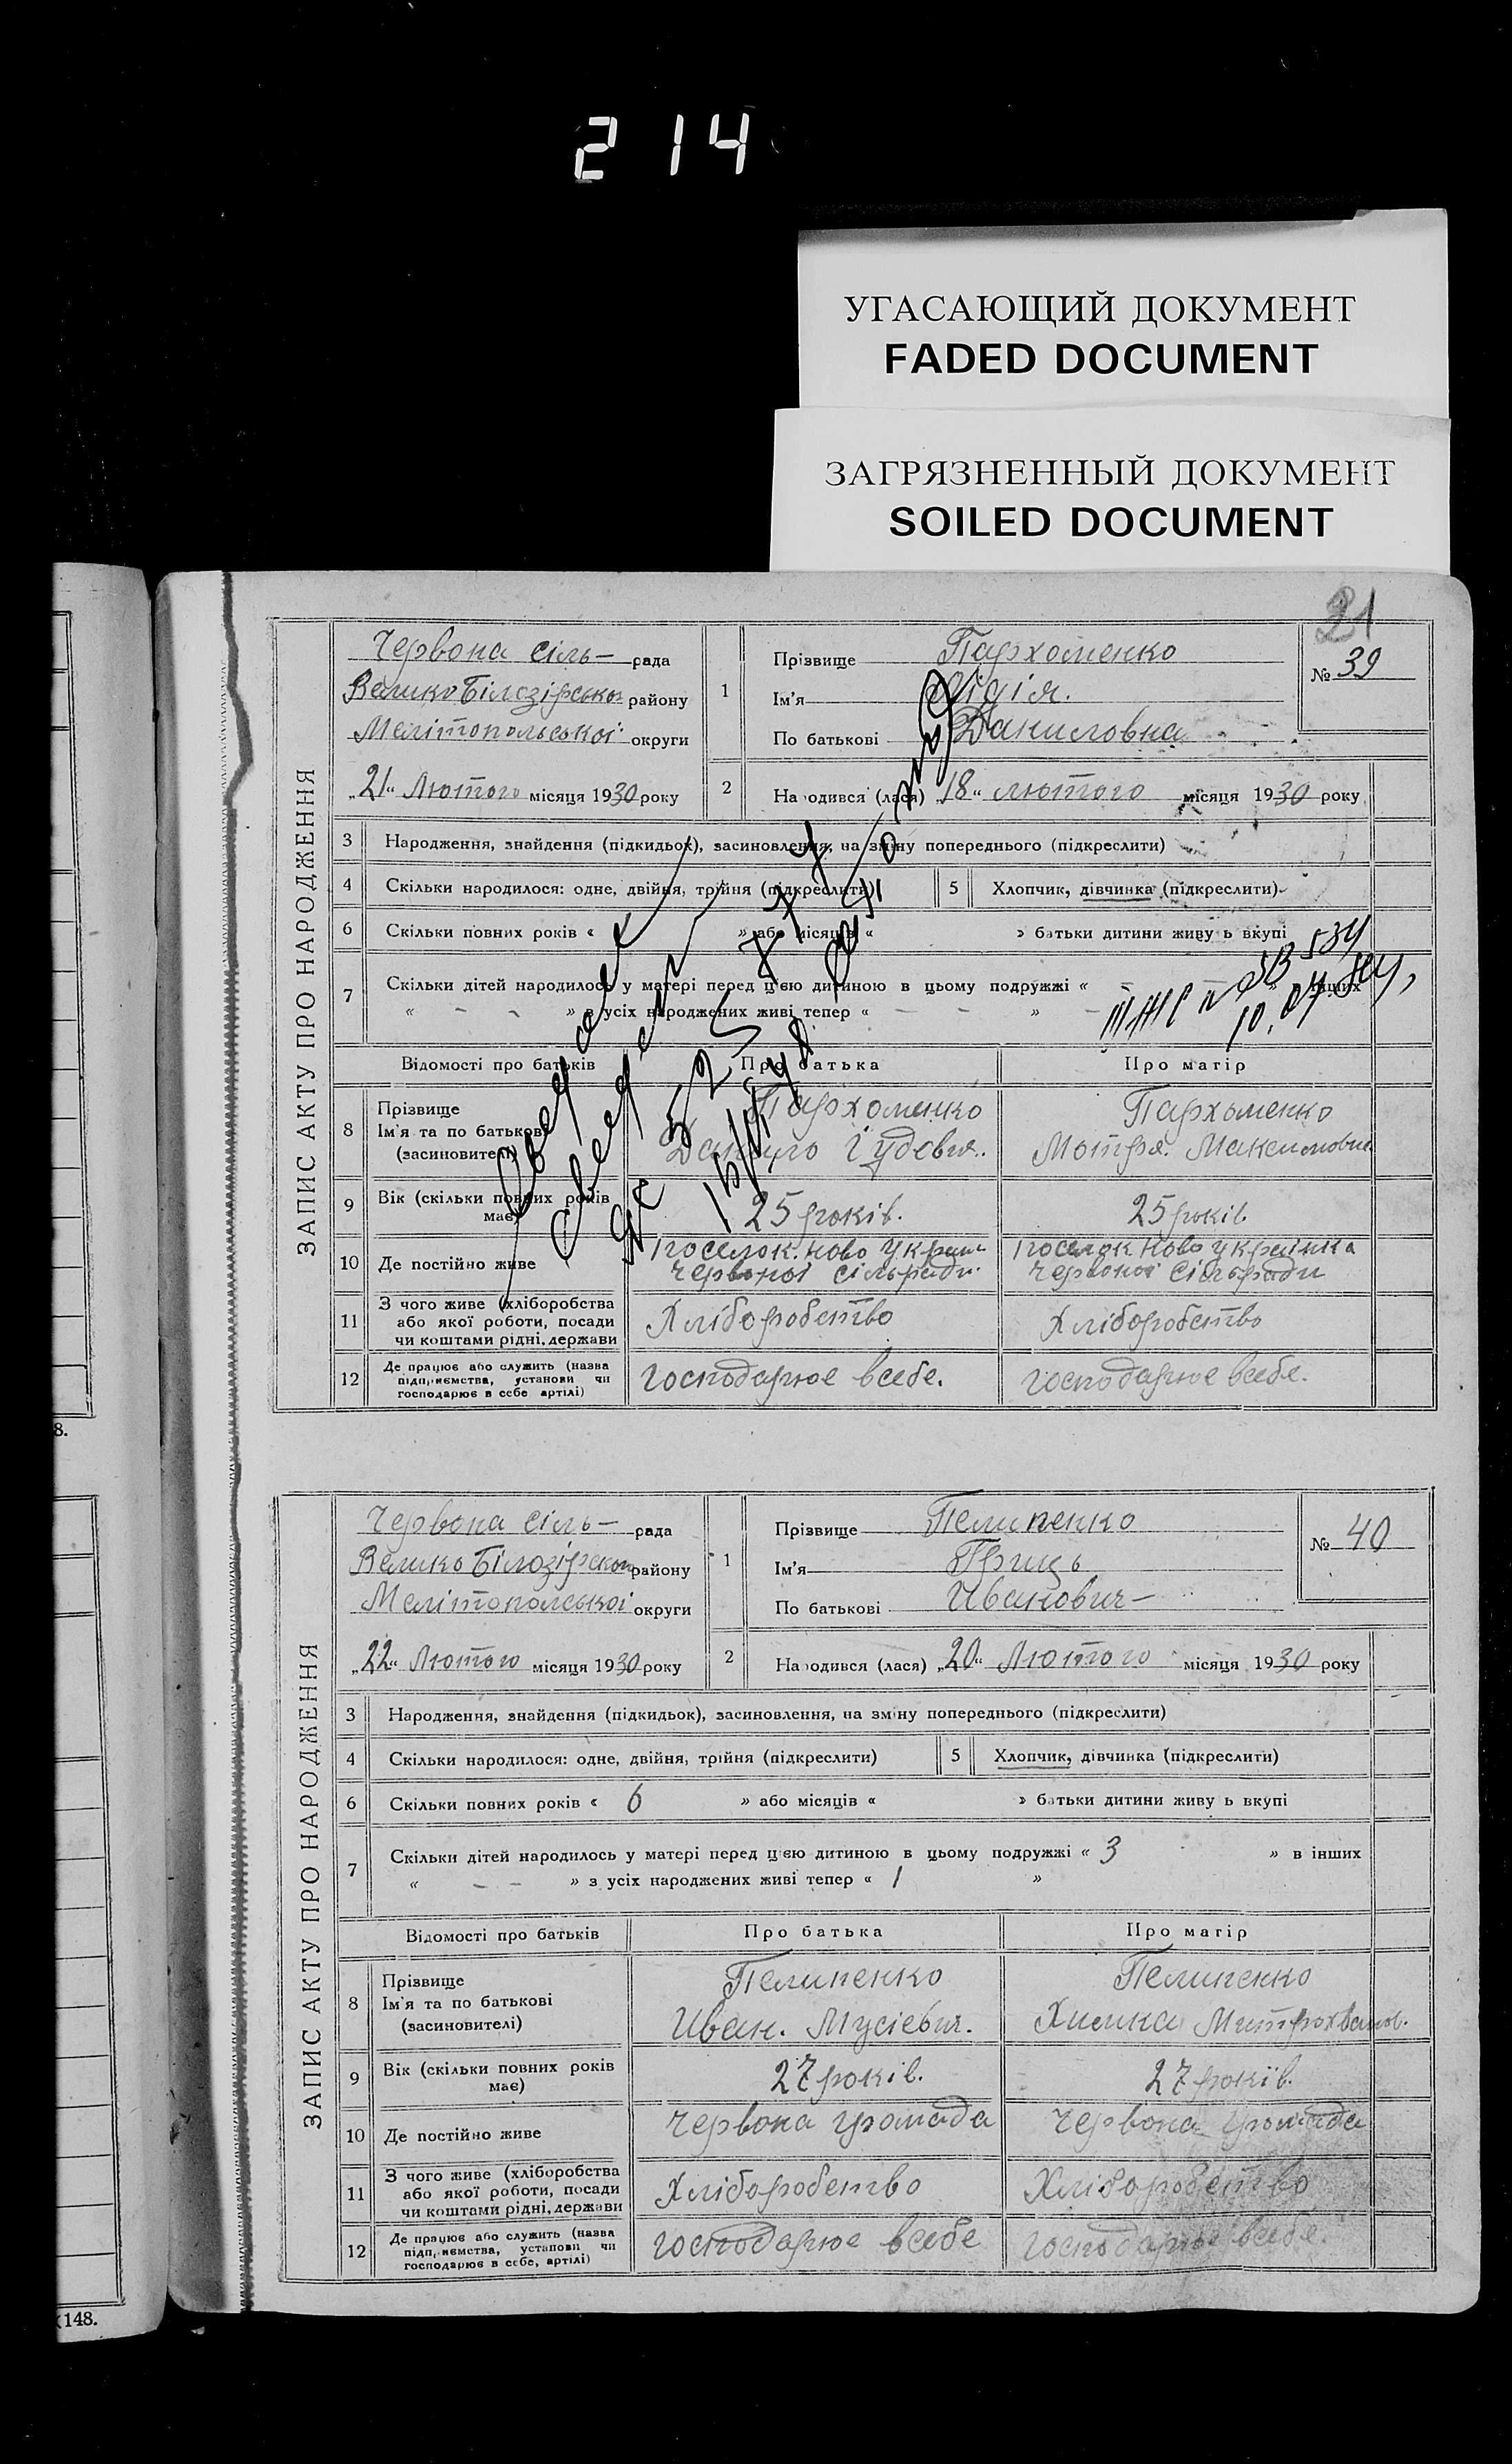 214
УГАСАЮЩИЙ ДОКУМЕНТ
FADED DOCUMENT
ЗАГРЯЗНЕННЫЙ ДОКУМЕНТ
SOILED DOCUMENT
8.
148.
21
ЗАПИС АКТУ ПРО НАРОДЖЕННЯ
Червона сіль- рада
Велико Білозірської району
Мелітопольської округи
„21“ Лютого місяця 1930 року
1
Прізвище Пархоменко
Ім'я Лідія.
По батькові Даниловна
№ 39
2 Народився (лася) „18“ лютого місяця 1930 року
3 Народження, знайдення (підкидьок), засиновлення, на зміну попереднього (підкреслити)
4 Скільки народилося: одне, двійня, трійня (підкреслити) 5 Хлопчик, дівчинка (підкреслити)
6 Скільки повних років « » або місяців « » батьки дитини живу ь вкупі
7 Скільки дітей народилось у матері перед цією дитиною в цьому подружжі « – – » в інших
« – – – » з усіх народжених живі тепер « – – » –
Відомості про батьків Про батька Про матір
8 Прізвище Пархоменко Пархоменко
Ім'я та по батькові Данило Мотря. Максимовна
(засиновителі)
9 Вік (скільки повних років має) 25 років. 25 років.
10 Де постійно живе поселок. Ново Україн поселок Ново Українка
Червоної сільради. Червоної сільради
11 З чого живе (хліборобства або якої роботи, посади чи коштами рідні, держави Хліборобство Хліборобство
12 Де працює або служить (назва підприємства, установи чи господарює в себе артілі) Господарює в себе. Господарює в себе.
ЗАПИС АКТУ ПРО НАРОДЖЕННЯ
Червона сіль- рада
Велико Білозірської району
Мелітопольської округи
„22“ Лютого місяця 1930 року
1
Прізвище Пелипенко
Ім'я Гриць
По батькові Иванович-
№ 40
2 Народився (лася) „20“ Лютого місяця 1930 року
3 Народження, знайдення (підкидьок), засиновлення, на зміну попереднього (підкреслити)
4 Скільки народилося: одне, двійня, трійня (підкреслити) 5 Хлопчик, дівчинка (підкреслити)
6 Скільки повних років « 6 » або місяців « » батьки дитини живу ь вкупі
7 Скільки дітей народилось у матері перед цією дитиною в цьому подружжі « 3 » в інших
« – – » з усіх народжених живі тепер « 1 »
Відомості про батьків Про батька Про матір
8 Прізвище Пелипенко Пелипенко
Ім'я та по батькові Иван. Мусієвич. Химка Митрохванов.
(засиновителі)
9 Вік (скільки повних років має) 27 років. 27 років.
10 Де постійно живе Червона громада Червона громада
11 З чого живе (хліборобства або якої роботи, посади чи коштами рідні, держави Хліборобство Хліборобство
12 Де працює або служить (назва підприємства, установи чи господарює в себе, артілі) Господарює в себе Господарює в себе.